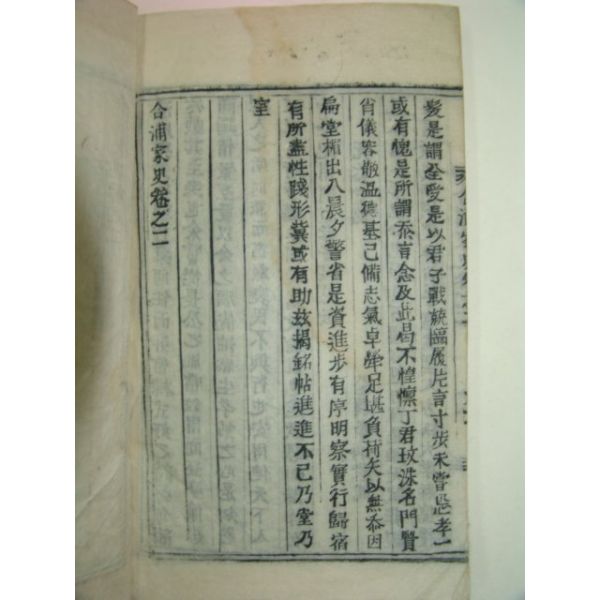 髮是謂全受是以君子戰兢臨履片言寸步未嘗忘孝一
或有愧是所謂忝言念及此曷不惶懍丁君玟洙名門賢
肖儀容敬溫德基已備志氣卓犖足堪負荷矢以無忝因
扁堂楣出入晨夕警省是資進步有序明察實行歸宿
有所盡性踐形冀或有助玆揭銘帖進進不已乃堂乃
室
合浦家史卷之二